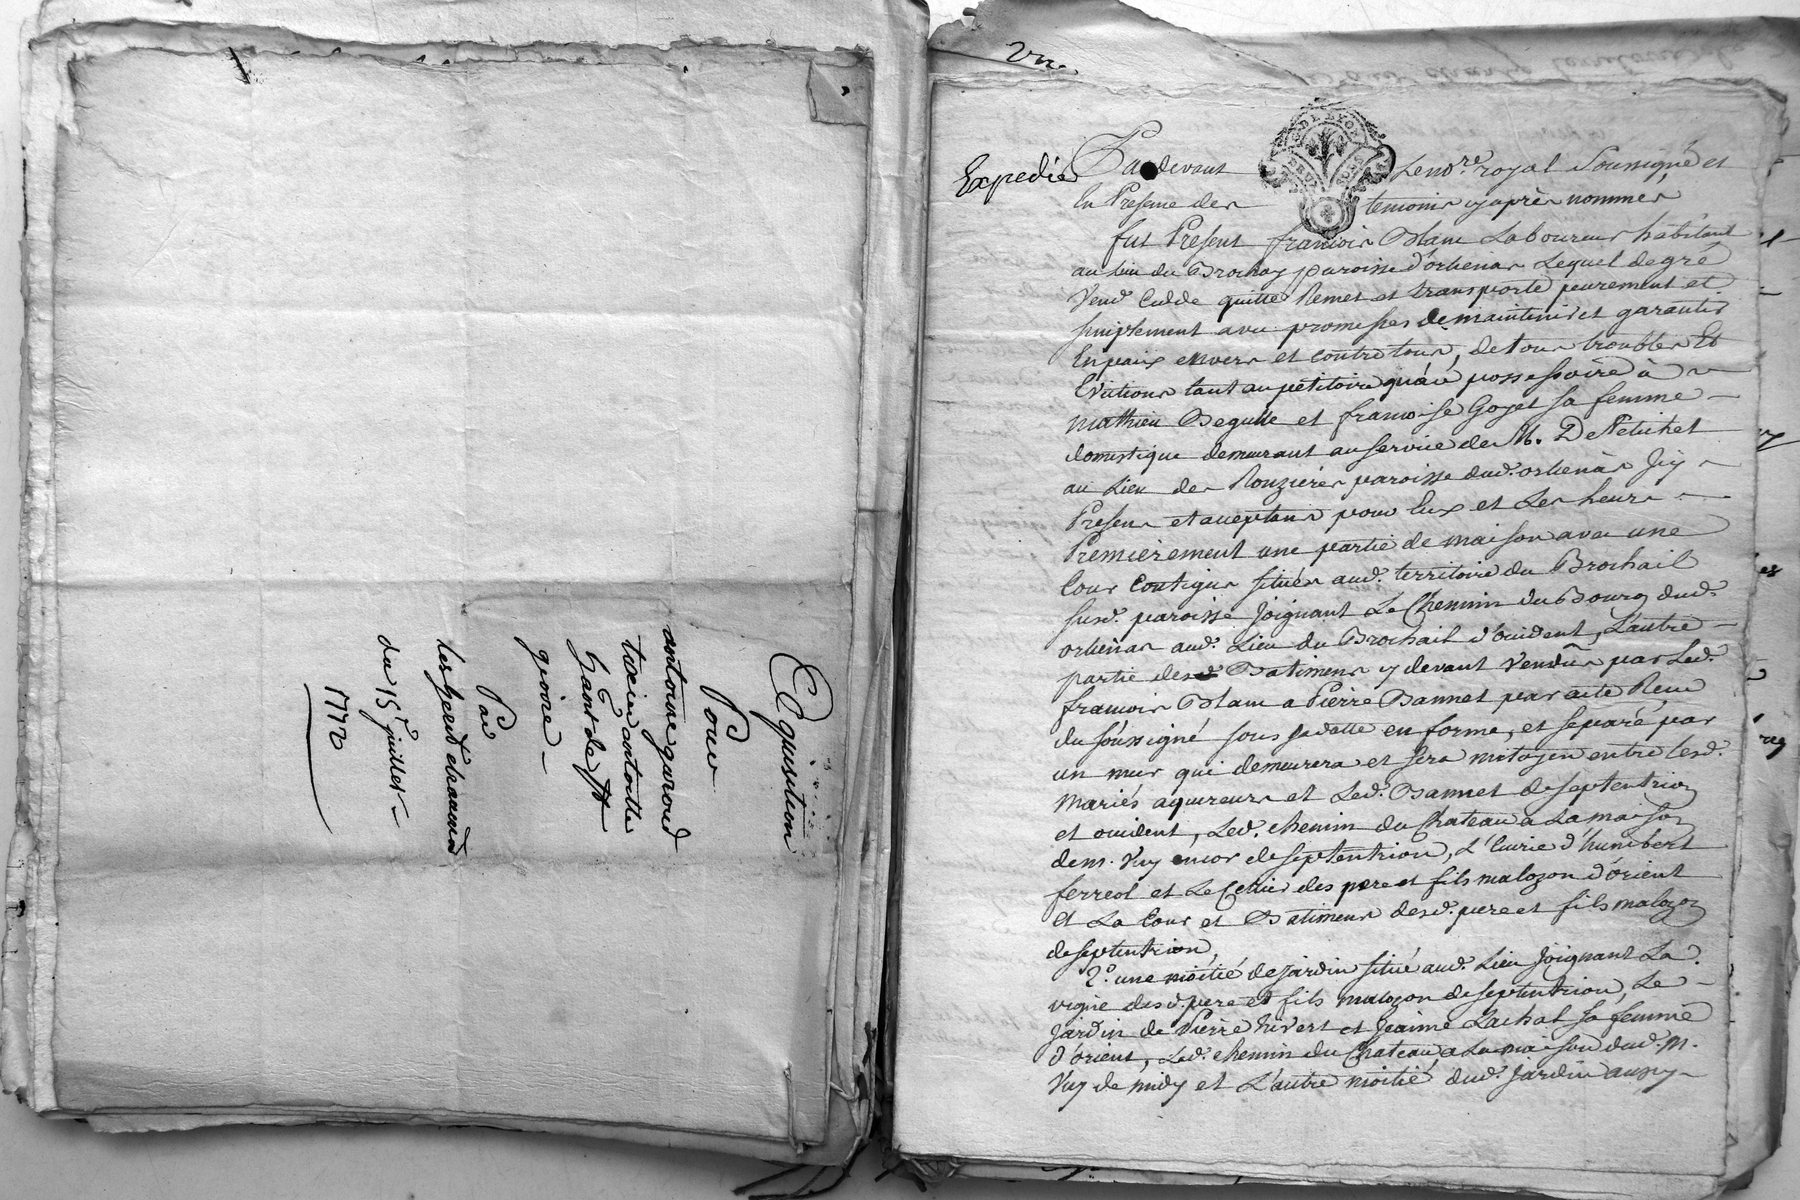 Equisition
Pour
antoine garoud
et
habt de
Par
les herit
du 15e juillet
1772
Vu
Expedié
Pardevant Le nore royal Soussigné et
En Presence des temoins cy après nommés
fut Present francois Blanc Laboureur habitant
au lieu du Brochay paroisse d'orlienas Lequel de gré
Vend Cedde quitte Remet et transporte purement et
simplement avec promesses de maintenir et garantir
En paix envers et contre tous, de tous troubles Et
Evictions tant au petitoire qu'au possessoire à
mathieu Begulle et francoise Goyet sa femme
domestique demeurant au service de M. De Petichet
au Lieu des Rouzieres paroisse dud. orlienas Icy
Presens et acceptans pour Eux et Les Leurs
Premierement une partie de maison avec une
Cour Contigue située aud. territoire du Brochail
susd. paroisse joignant Le Chemin du Bourg dud.
orlienas aud. Lieu du Brochail d'occident, L'autre
partie desd. Batimens cy devant Vendus par Led.
francois Blanc a Pierre Bannet par acte Recu
du soussigné sous sa datte en forme, et separé par
un mur qui demeurera et sera mitoyen entre lesd.
mariés acquereurs et Led. Bannet de septentrion
et occident, Led. chemin du Chateau a La maison
de m. Vuy encor de septentrion, L'Ecurie d'humbert
ferreol et Le Cellier des pere et fils malozon d'orient
et La Cour et Batimens desd. pere et fils malozon
de septentrion,
2o. une moitié de jardin situé aud. Lieu joignant La
vigne desd. pere et fils malozon de septentrion, Le
jardin de Pierre Rivert et jeanne Lachat sa femme
d'orient, Led. chemin du Chateau a La maison dud. M.
Vuy de midy et L'autre moitié dud. jardin